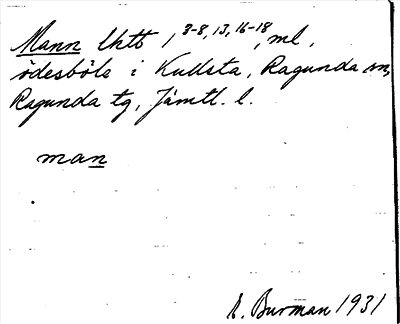 Mann lhtt 1, 3-8, 13, 16-18, ml,
ödesböle i Kullsta, Ragunda sn,
Ragunda tg, Jämtl. l.
man
E. Burman 1931